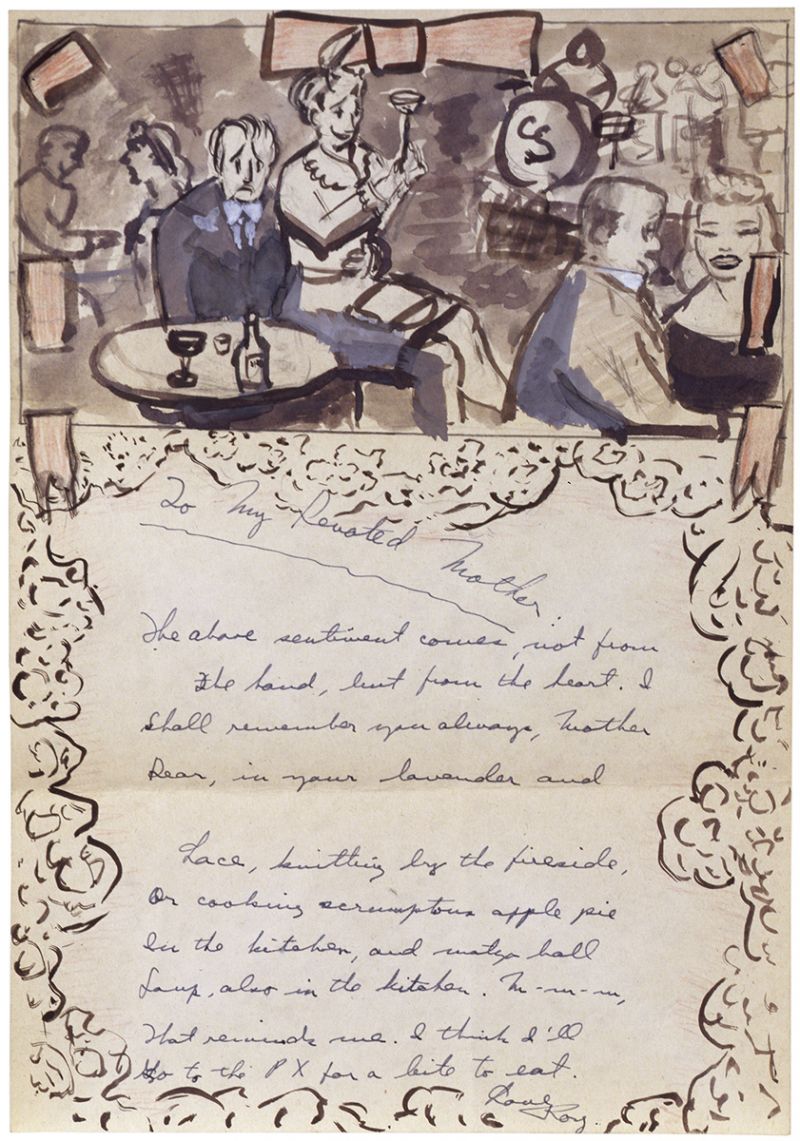 CS
To My Devoted Mother.
The above sentiment comes, not from
the hand, but from the heart. I
Shall remember you always, Mother
Dear, in your lavender and
Lace, knitting by the fireside,
Or cooking scrumptous apple pie
In the kitchen, and matza ball
Soup, also in the kitchen. M-m-m,
That reminds me. I think I'll
Go to the PX for a bite to eat.
Love
Roy.